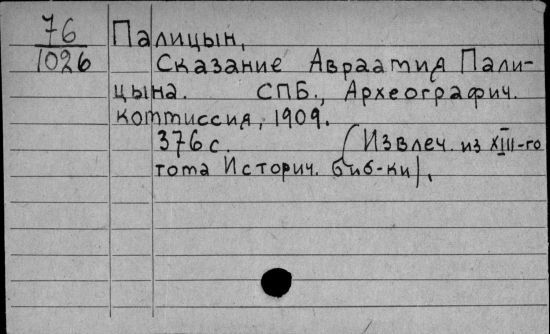 76
1026
Палицын,
Сказание Авраамия Пали-
цына. СПБ., Археографич.
коммиссия, 1909.
376 с. (Извлеч. из XIII-го
тома Историч. биб-ки).